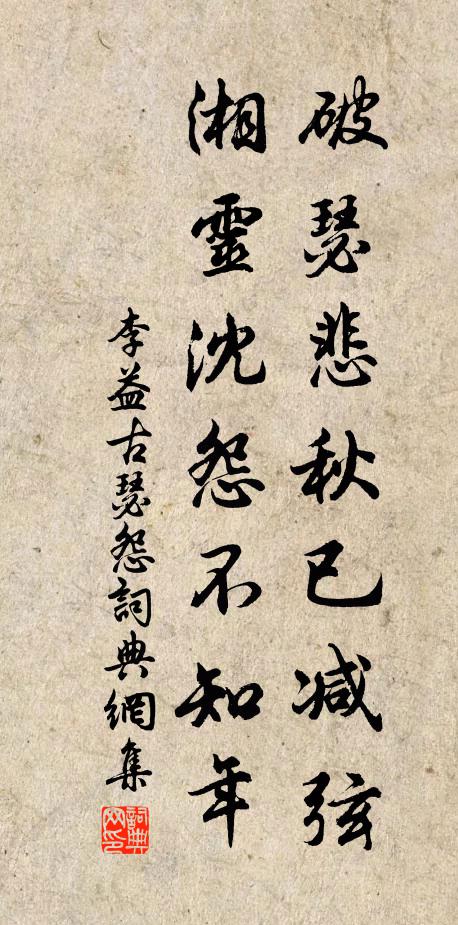 破瑟悲秋已減弦
湘靈沈怨不知年
李益古瑟怨詞典網集
詞典網印